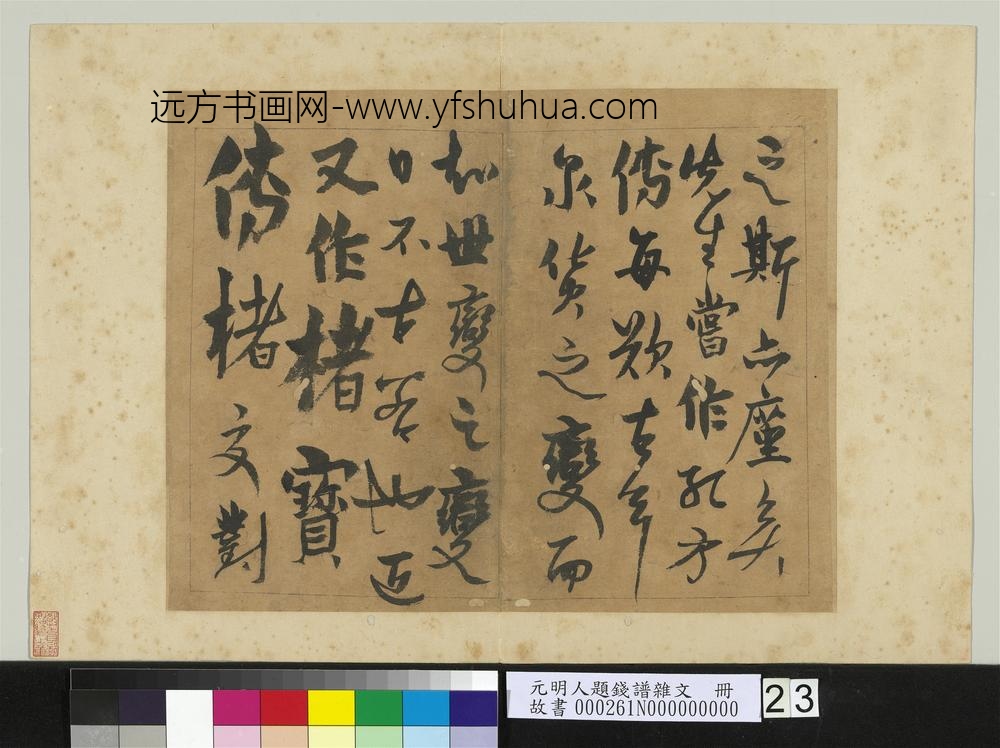 远方书画网-www.yfshuhua.com
之斯亦塵矣
先生嘗作孔方
傳每欲古年
泉貨之變而
知世變之變
日不古若也近
又作楮寶
傳楮交對
元明人題錢譜雜文 冊
故書 000261N000000000
23